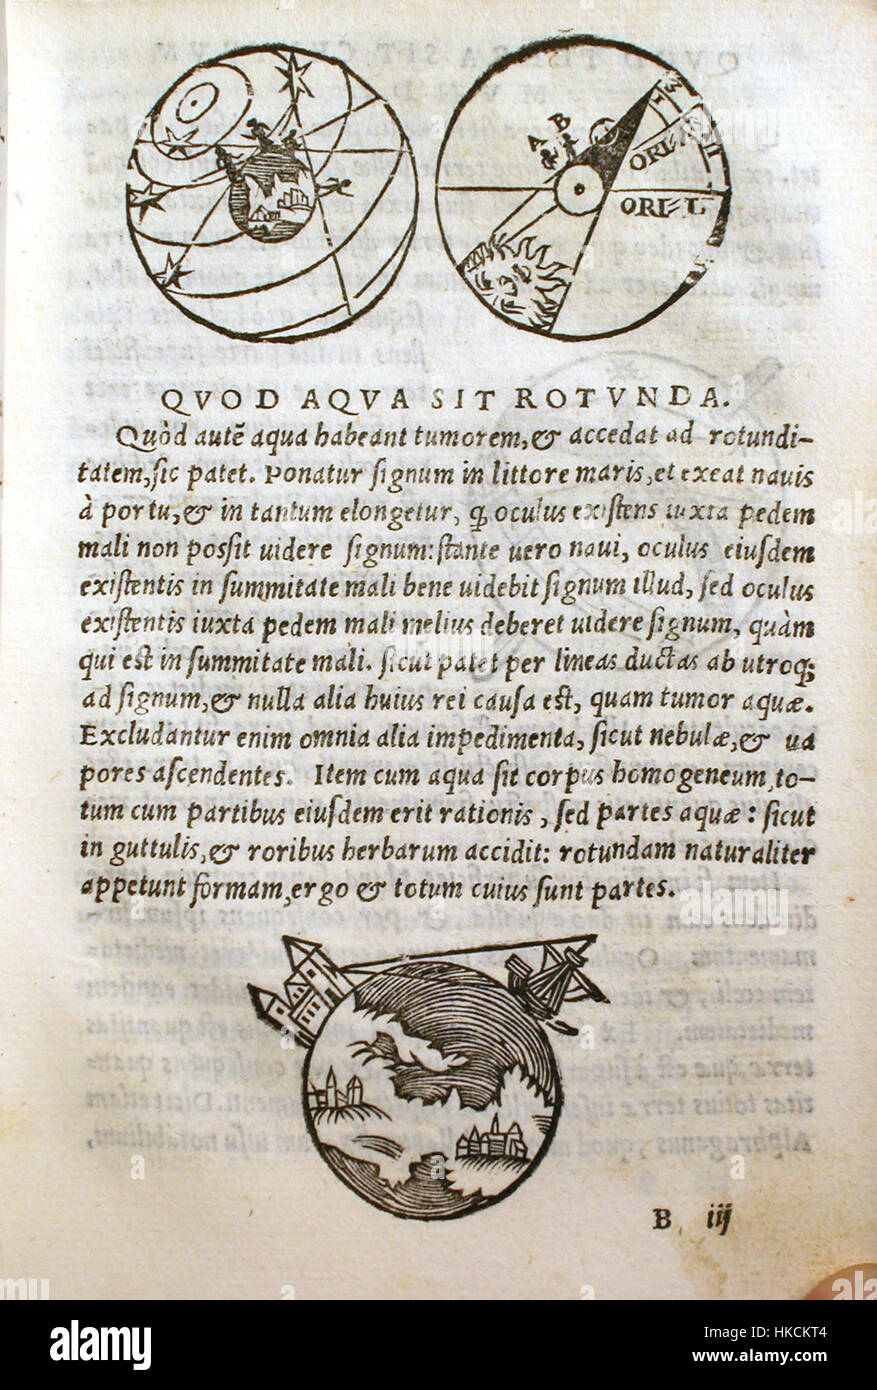 A B
ORIENS
ORIE L
QVOD AQVA SIT ROTVNDA.
Quòd autē aqua habeant tumorem, & accedat ad rotundi-
tatem, sic patet. Ponatur signum in littore maris, et exeat nauis
à portu, & in tantum elongetur, ꝙ oculus existens iuxta pedem
mali non possit uidere signum: stante uero naui, oculus eiusdem
existentis in summitate mali bene uidebit signum illud, sed oculus
existentis iuxta pedem mali melius deberet uidere signum, quàm
qui est in summitate mali. sicut patet per lineas ductas ab utroq;
ad signum, & nulla alia huius rei causa est, quam tumor aquæ.
Excludantur enim omnia alia impedimenta, sicut nebulæ, & ua
pores ascendentes. Item cum aqua sit corpus homogeneum, to-
tum cum partibus eiusdem erit rationis, sed partes aquæ: sicut
in guttulis, & roribus herbarum accidit: rotundam naturaliter
appetunt formam, ergo & totum cuius sunt partes.
B iij
alamy stock photo
HKCKT4
www.alamy.com